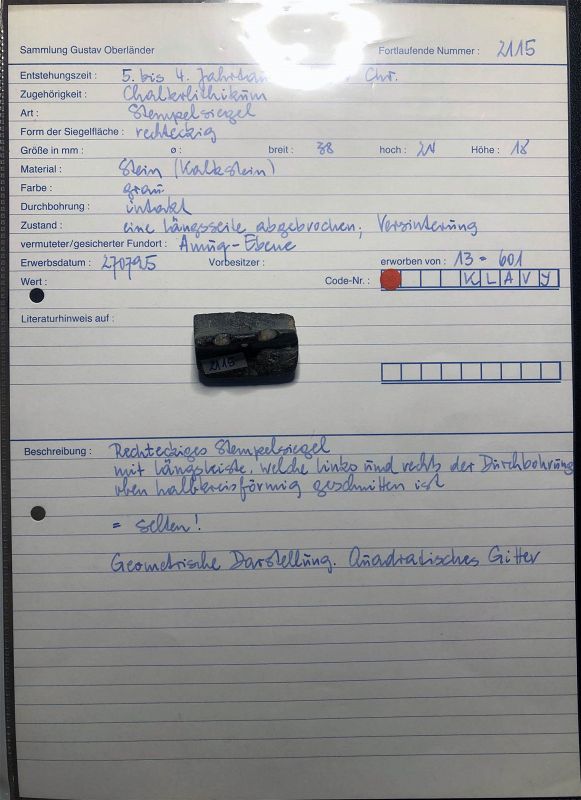 Sammlung Gustav Oberländer Fortlaufende Nummer : 2115
Entstehungszeit : 5. bis 4. Chr.
Zugehörigkeit : Chalkolithikum
Art : Stempelsiegel
Form der Siegelfläche : rechteckig
Größe in mm : ø : breit : 38 hoch : 24 Höhe : 18
Material : Stein (Kalkstein)
Farbe : grau
Durchbohrung : intakt
Zustand : eine Längsseite abgebrochen; Versinterung
vermuteter/gesicherter Fundort : Amuq-Ebene
Erwerbsdatum : 270795 Vorbesitzer : erworben von : 13 = 601
Wert : Code-Nr. : K L A V Y
Literaturhinweis auf :
2115
Beschreibung : Rechteckiges Stempelsiegel
mit Längsleiste, welche links und rechts der Durchbohrung
oben halbkreisförmig geschnitten ist
= selten!
Geometrische Darstellung. Quadratisches Gitter